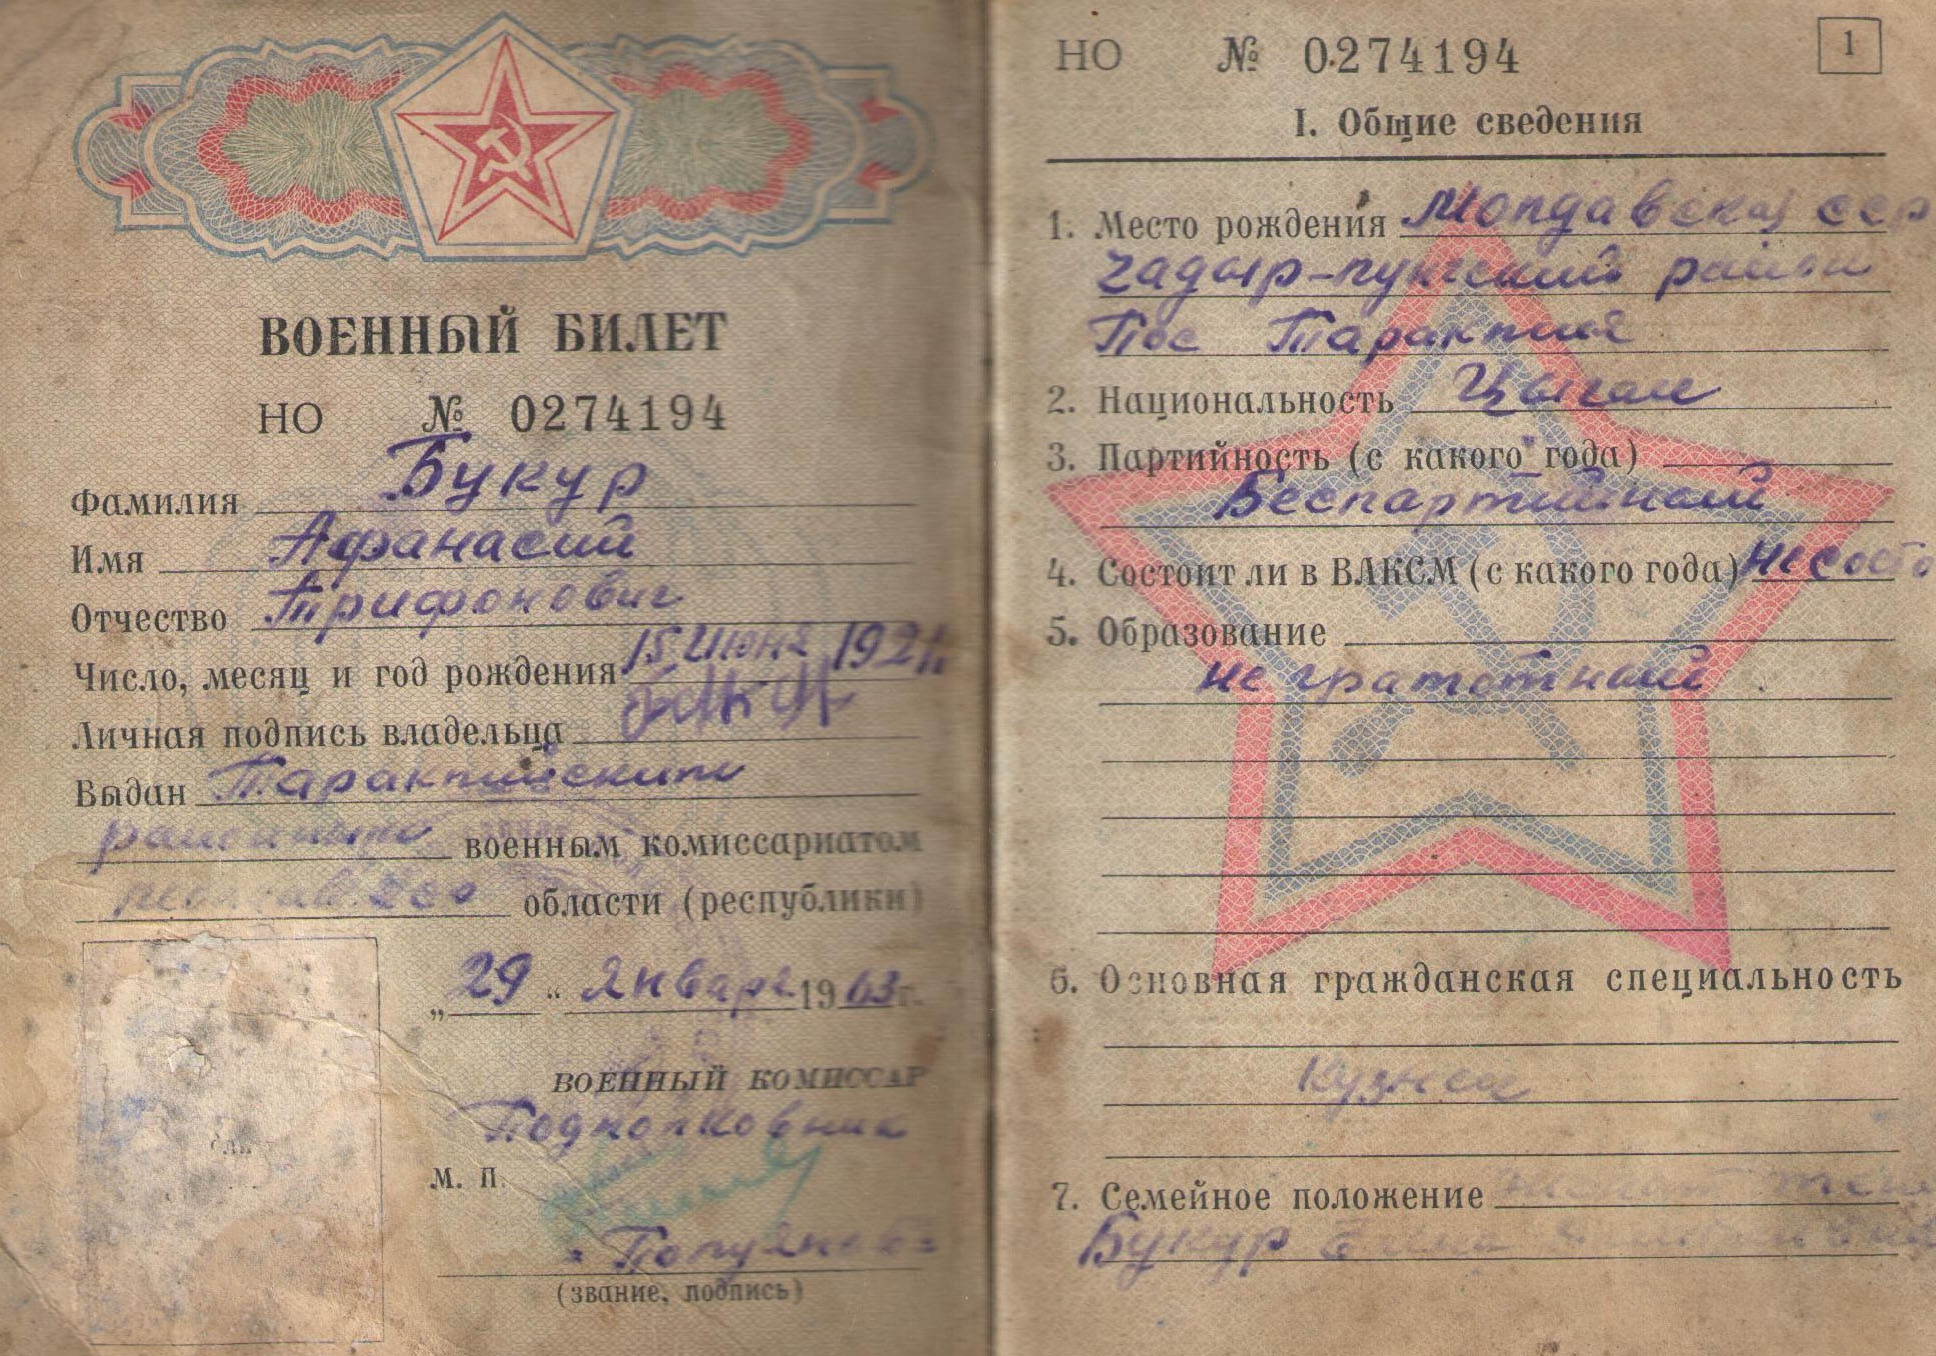 ВОЕННЫЙ БИЛЕТ
НО № 0274194
Фамилия Букур
Имя Афанасий
Отчество Трифонович
Число, месяц и год рождения 15 Июня 1921г.
Личная подпись владельца
Выдан Тараклийским
районным военным комиссариатом
области (республики)
„29“ Января 1963 г.
ВОЕННЫЙ КОМИССАР
Подполковник
М. П.
(звание, подпись)
НО № 0274194
1
I. Общие сведения
1. Место рождения Молдавской ССР
Чадыр-Лунгский район
Пос Тараклия
2. Национальность Цыган
3. Партийность (с какого года)
Беспартийный
4. Состоит ли в ВЛКСМ (с какого года) не состо
5. Образование
не грамотный
6. Основная гражданская специальность
Кузнец
7. Семейное положение
Букур